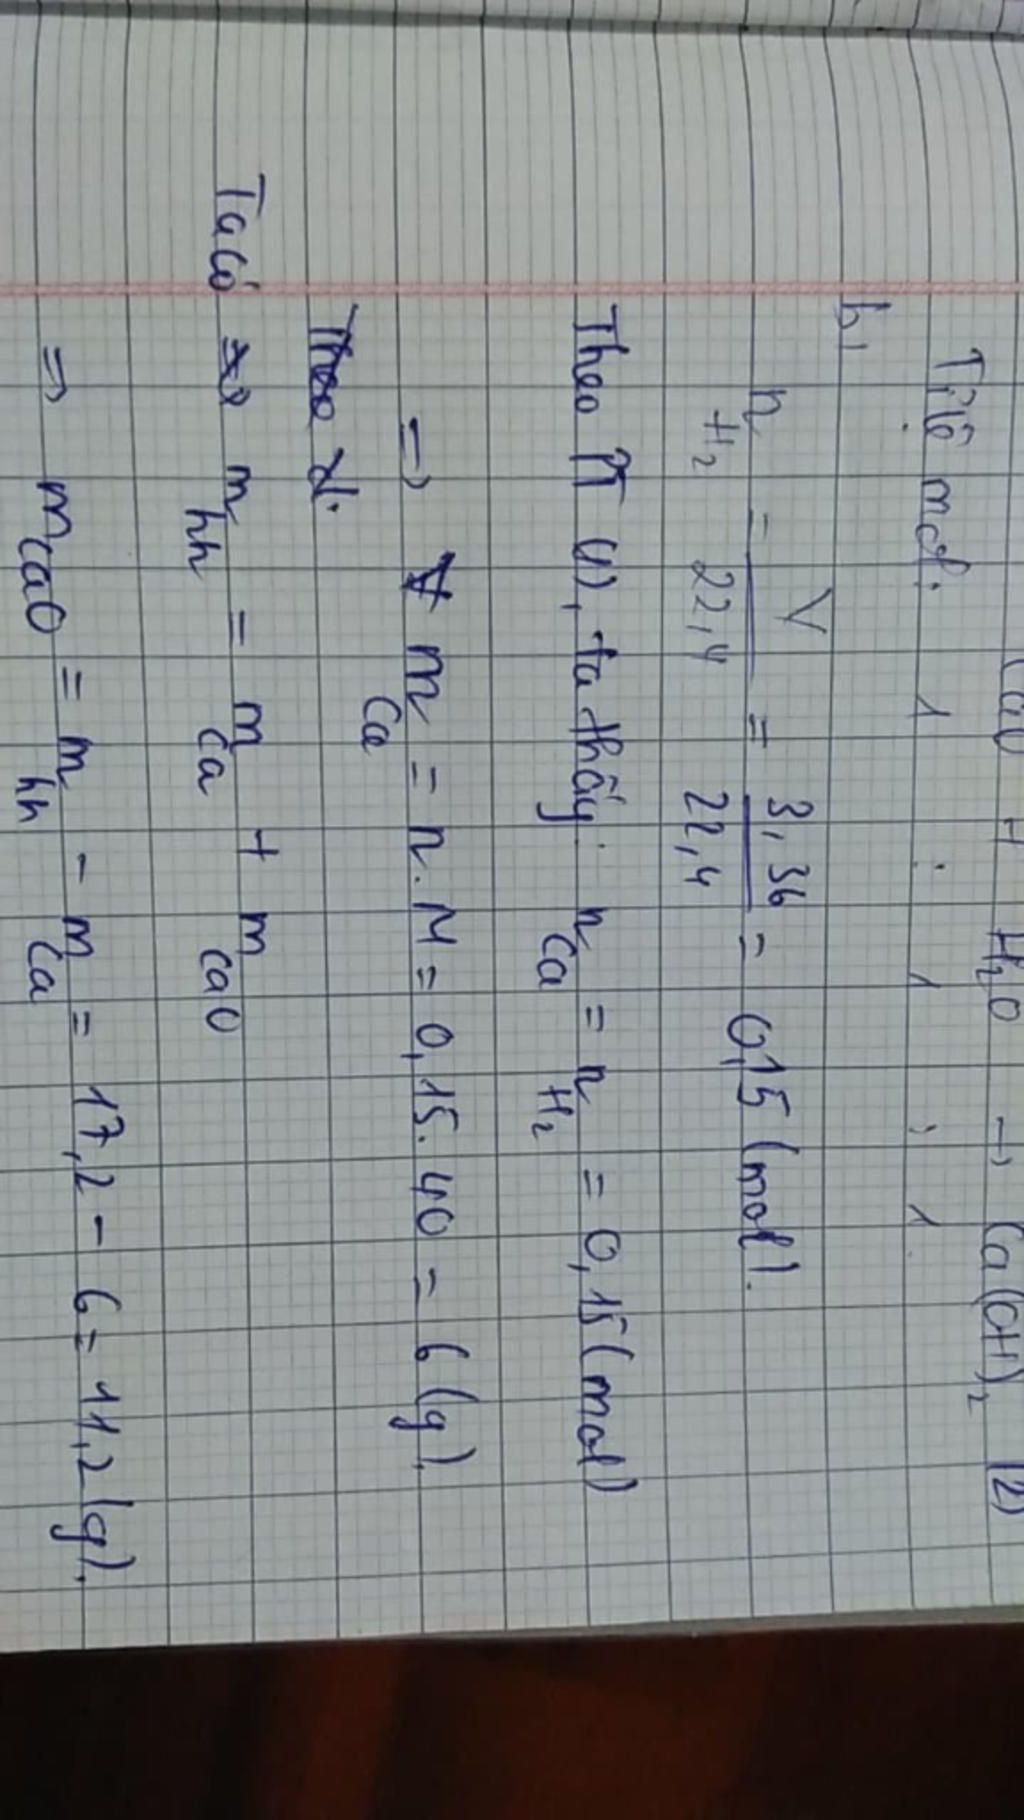 CaO + H₂O → Ca(OH)₂ (2)
Tỉ lệ mol: 1 : 1 : 1
b,
n H₂ = V/22,4 = 3,36/22,4 = 0,15 (mol).
Theo PT (1), ta thấy: n Ca = n H₂ = 0,15 (mol)
=> m Ca = n.M = 0,15.40 = 6 (g).
Theo
Ta có m hh = m Ca + m CaO
=> m CaO = m hh - m Ca = 17,2 - 6 = 11,2 (g).